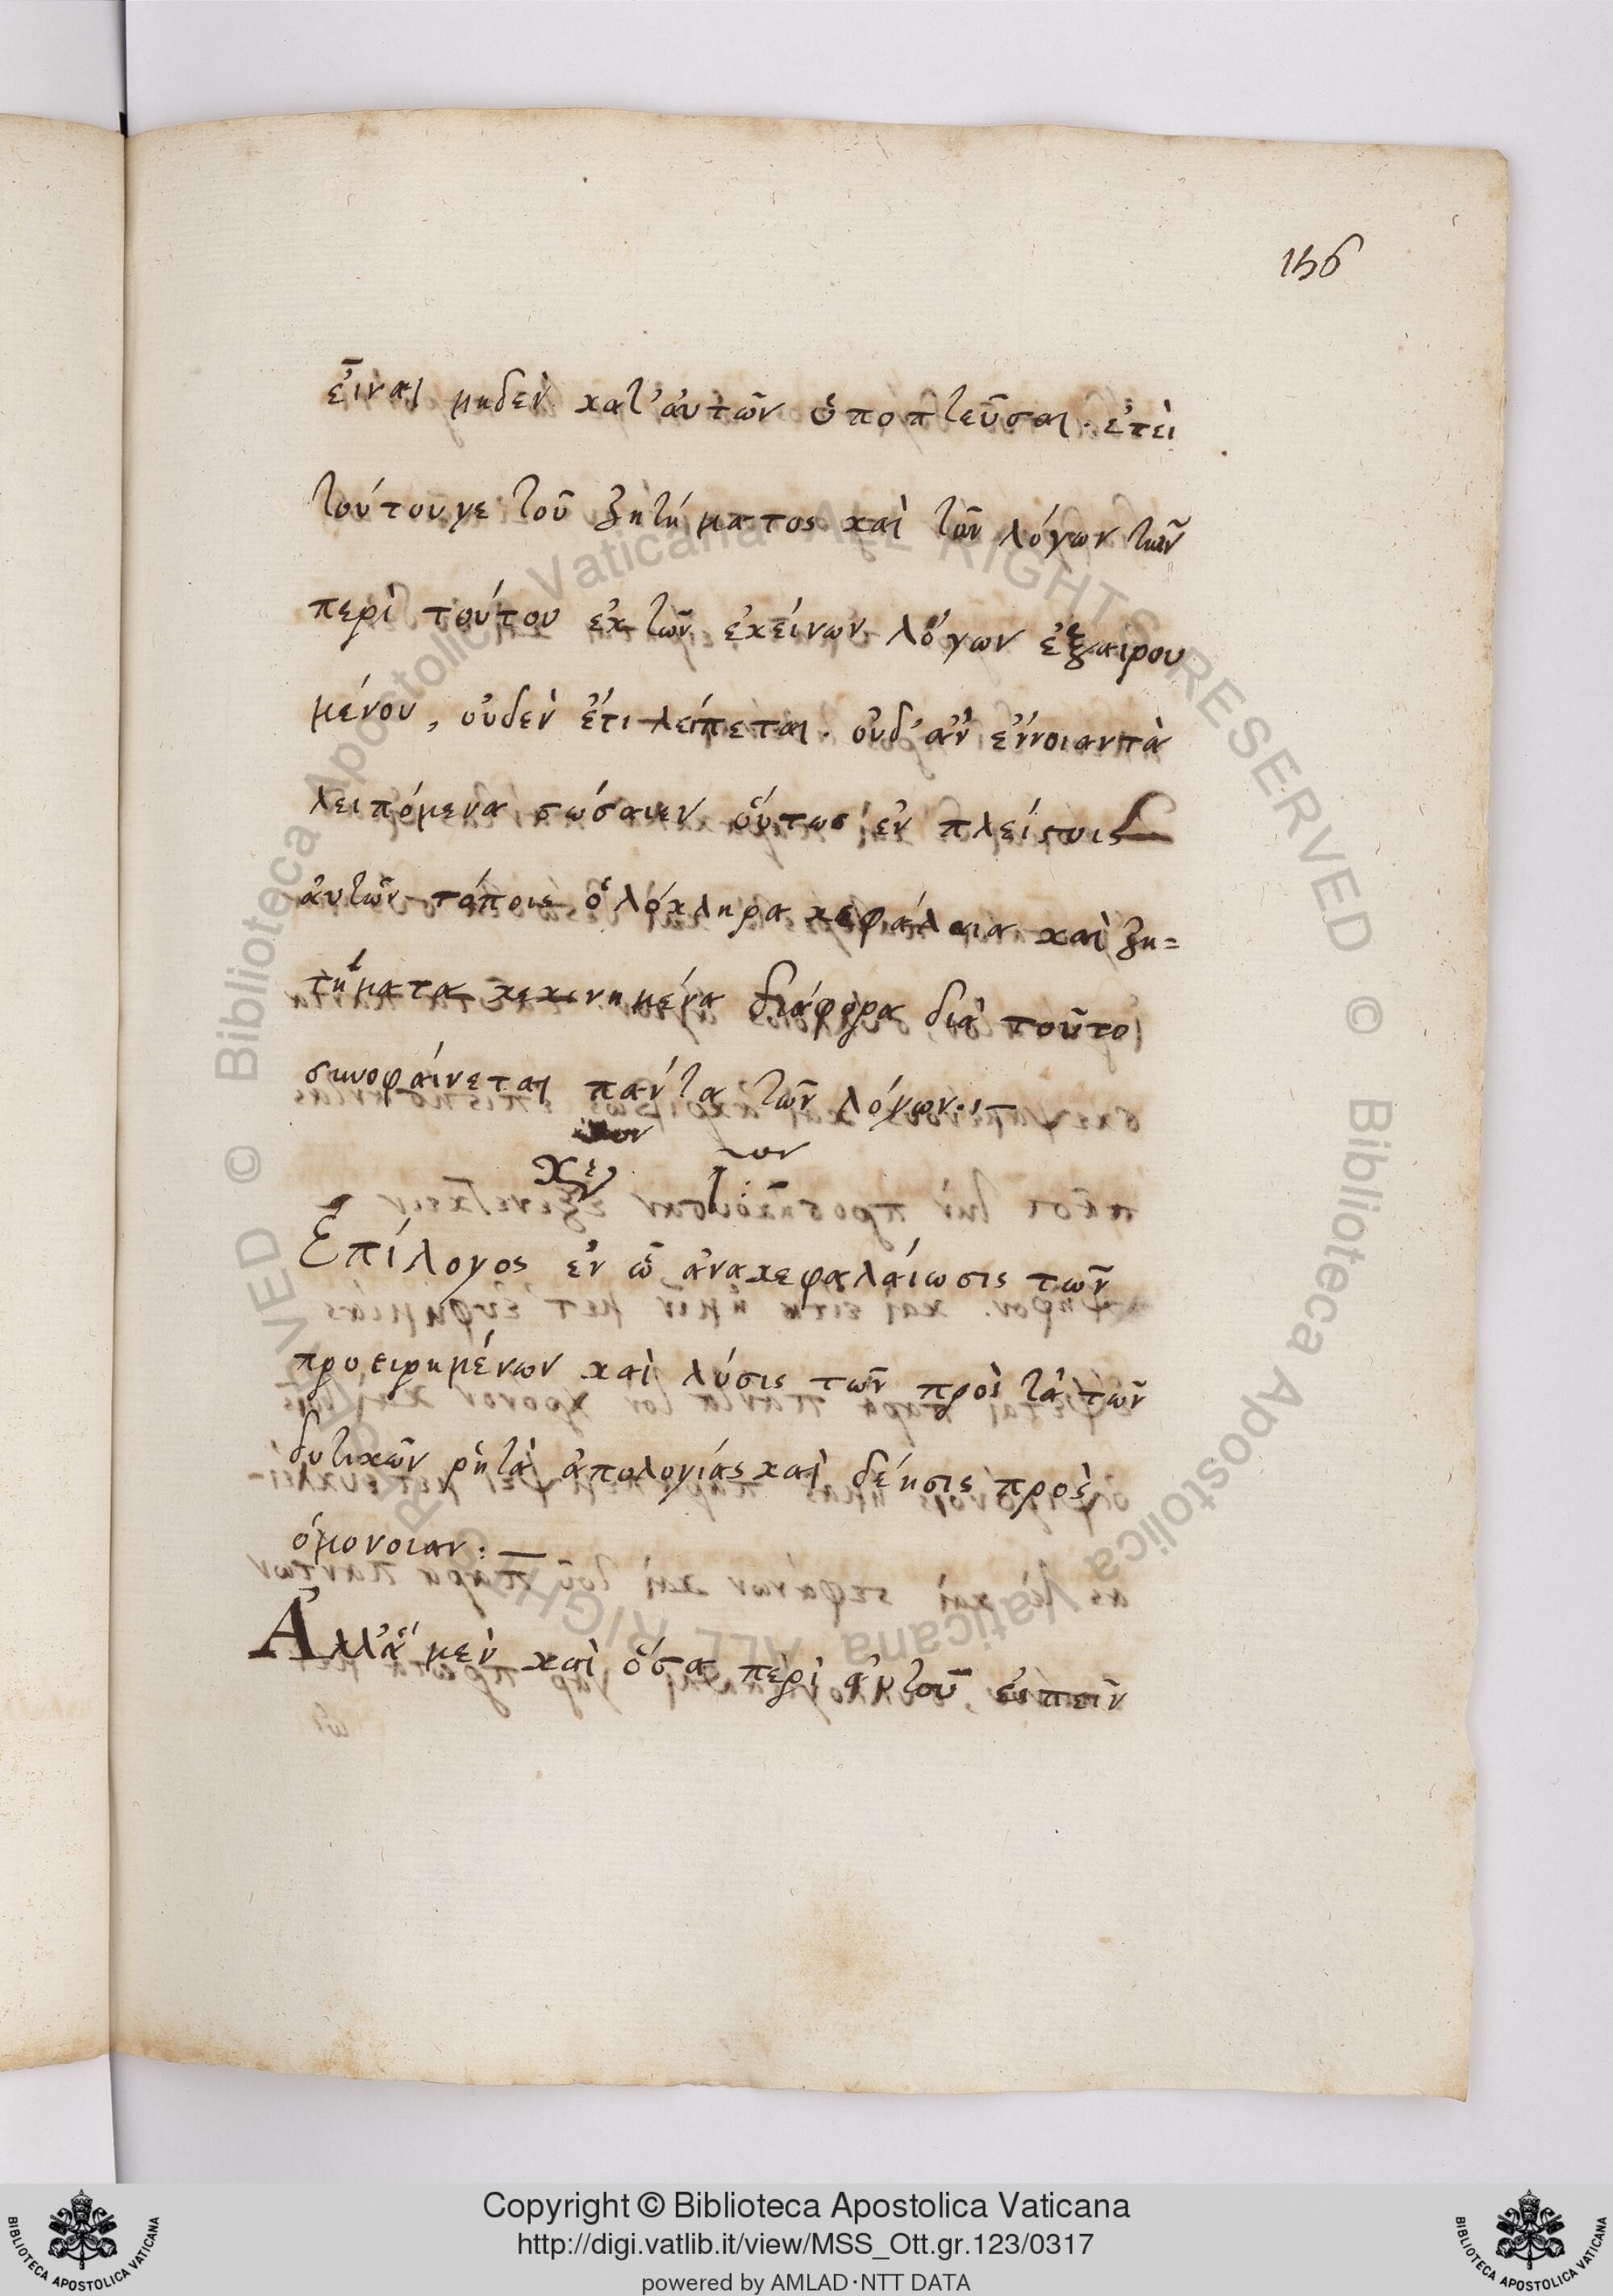 156
εἶναι μηδὲν κατ' αὐτῶν ὑποπτεῦσαι· ἐπεὶ
τούτου γε τοῦ ζητήματος καὶ τῶν λόγων τῶν
περὶ τούτου ἐκ τῶν ἐκείνων λόγων ἐξαιρου
μένου, οὐδὲν ἔτι λείπεται. οὐδ' ἂν ἔννοιαν τὰ
λειπόμενα σώσαιεν οὕτως ἐν πλείστοις
αὐτῶν τόποις ὁλόκληρα κεφάλαια καὶ ζη=
τήματα κεκινημένα διάφορα διὰ τοῦτο
συνοφαίνεται πάντα τῶν λόγων·
Ἐπίλογος ἐν ᾧ ἀνακεφαλαίωσις τῶν
προειρημένων καὶ λύσις τῶν πρὸς τὰ τῶν
δυτικῶν ῥητὰ ἀπολογίας καὶ δέησις πρὸς
ὁμόνοιαν: —
Ἀλλ' ἃ μὲν καὶ ὅσα περὶ αὐτοῦ εἰπεῖν
Biblioteca Apostolica Vaticana ALL RIGHTS RESERVED ©
Copyright © Biblioteca Apostolica Vaticana
http://digi.vatlib.it/view/MSS_Ott.gr.123/0317
powered by AMLAD·NTT DATA
BIBLIOTECA APOSTOLICA VATICANA
BIBLIOTECA APOSTOLICA VATICANA